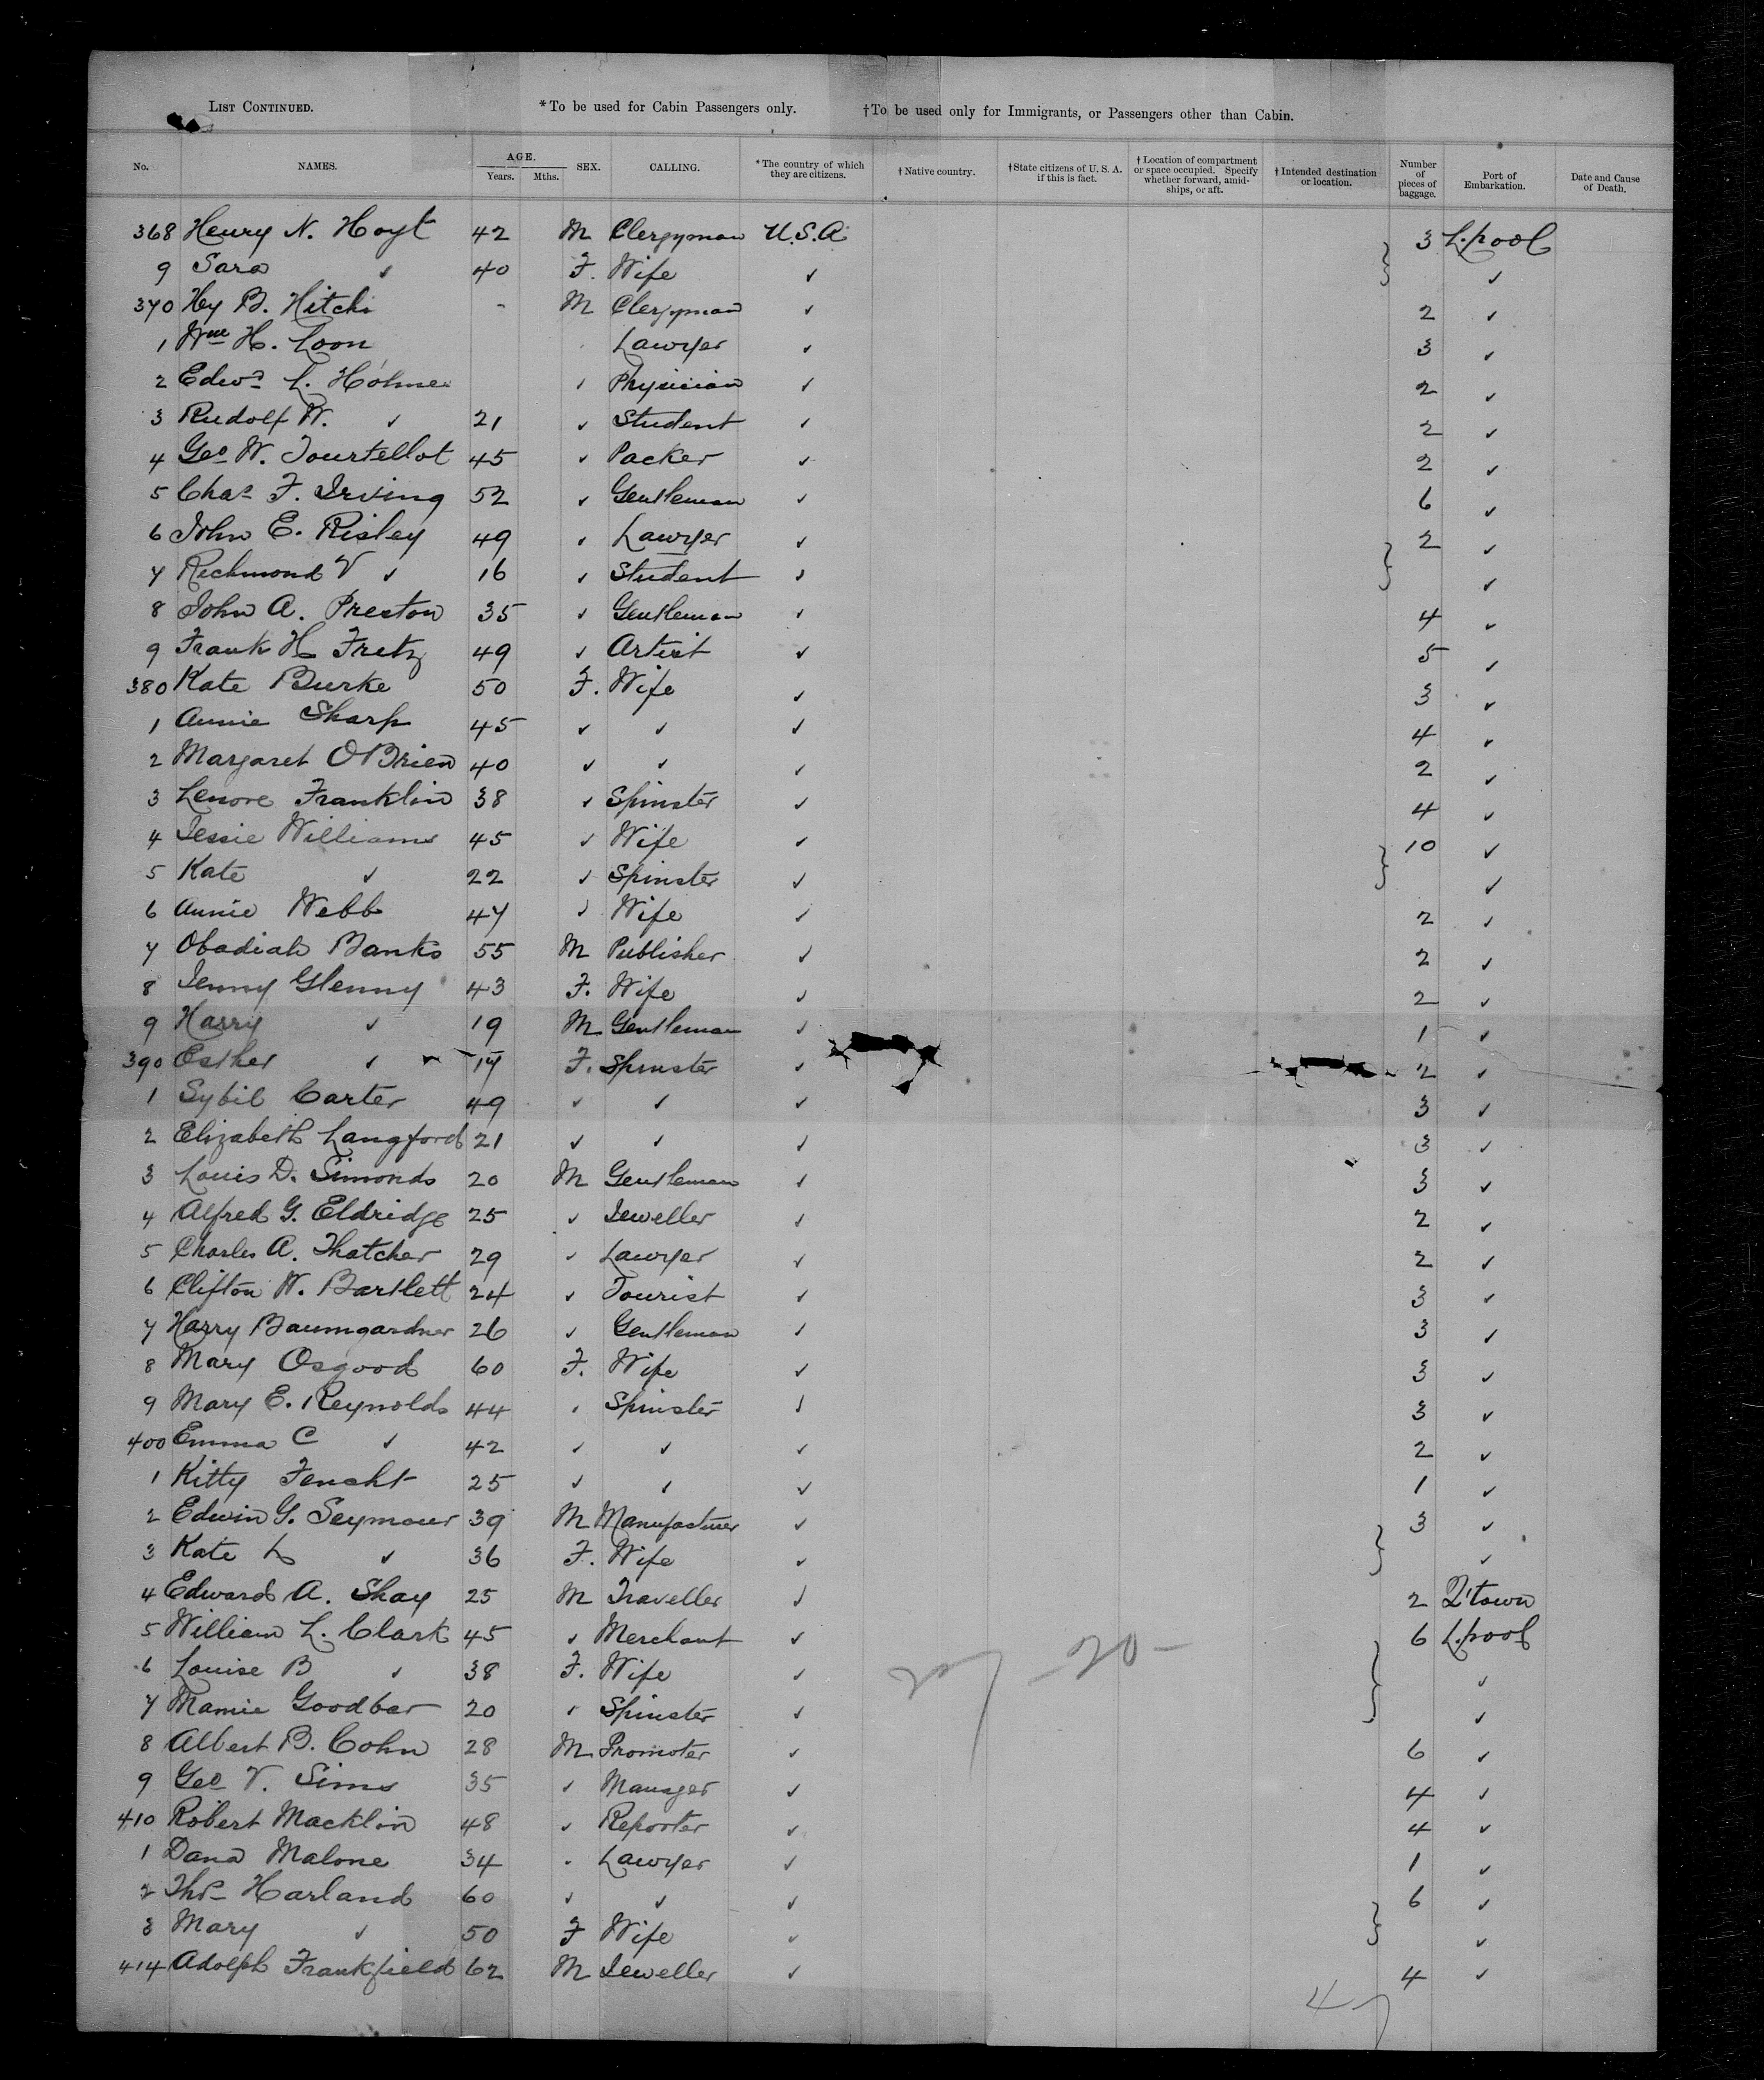 LIST CONTINUED. *To be used for Cabin Passengers only. †To be used only for Immigrants, or Passengers other than Cabin.
No. NAMES. AGE. Years. Mths. SEX. CALLING. *The country of which they are citizens. †Native country. †State citizens of U. S. A. if this is fact. †Location of compartment or space occupied. Specify whether forward, amidships, or aft. †Intended destination or location. Number of pieces of baggage. Port of Embarkation. Date and Cause of Death.
368 Henry N. Hoyt 42 M Clergyman U.S.A. 3 L.pool
9 Sara ✓ 40 F. Wife ✓ ✓
370 Hy B. Hitch - M Clergyman ✓ 2 ✓
1 Wm H. Loon Lawyer ✓ 3 ✓
2 Edwd L. Holmes ✓ Physician ✓ 2 ✓
3 Rudolf W. ✓ 21 ✓ Student ✓ 2 ✓
4 Geo W. Tourtellot 45 ✓ Packer ✓ 2 ✓
5 Chas F. Irving 52 ✓ Gentleman ✓ 6 ✓
6 John E. Risley 49 ✓ Lawyer ✓ 2 ✓
7 Richmond V ✓ 16 ✓ Student ✓ ✓
8 John A. Preston 35 ✓ Gentleman ✓ 4 ✓
9 Frank H Fretz 49 ✓ Artist ✓ 5 ✓
380 Kate Burke 50 F. Wife ✓ 3 ✓
1 Annie Sharp 45 ✓ ✓ ✓ 4 ✓
2 Margaret OBrien 40 ✓ ✓ ✓ 2 ✓
3 Lenore Franklin 38 ✓ Spinster ✓ 4 ✓
4 Jessie Williams 45 ✓ Wife ✓ 10 ✓
5 Kate ✓ 22 ✓ Spinster ✓ ✓
6 Annie Webb 47 ✓ Wife ✓ 2 ✓
7 Obadiah Banks 55 M Publisher ✓ 2 ✓
8 Jenny Glenny 43 F. Wife ✓ 2 ✓
9 Harry ✓ 19 M Gentleman ✓ 1 ✓
390 Esther ✓ 17 F. Spinster ✓ 2 ✓
1 Sybil Carter 49 ✓ ✓ ✓ 3 ✓
2 Elizabeth Langford 21 ✓ ✓ ✓ 3 ✓
3 Louis D. Simonds 20 M Gentleman ✓ 3 ✓
4 Alfred G. Eldridge 25 ✓ Jeweller ✓ 2 ✓
5 Charles A. Thatcher 29 ✓ Lawyer ✓ 2 ✓
6 Clifton W. Bartlett 24 ✓ Tourist ✓ 3 ✓
7 Harry Baumgardner 26 ✓ Gentleman ✓ 3 ✓
8 Mary Osgood 60 F. Wife ✓ 3 ✓
9 Mary E. Reynolds 44 ✓ Spinster ✓ 3 ✓
400 Emma C ✓ 42 ✓ ✓ ✓ 2 ✓
1 Kitty Feucht 25 ✓ ✓ ✓ 1 ✓
2 Edwin G. Seymour 39 M Manufacturer ✓ 3 ✓
3 Kate L ✓ 36 F. Wife ✓ ✓
4 Edward A. Shay 25 M Traveller ✓ 2 Q'town
5 William L. Clark 45 ✓ Merchant ✓ 6 L.pool
6 Louise B ✓ 38 F. Wife ✓ ✓
7 Mamie Goodbar 20 ✓ Spinster ✓ ✓
8 Albert B. Cohn 28 M Promoter ✓ 6 ✓
9 Geo V. Sims 35 ✓ Manager ✓ 4 ✓
410 Robert Macklin 48 ✓ Reporter ✓ 4 ✓
1 Dana Malone 34 ✓ Lawyer ✓ 1 ✓
2 Thos Harland 60 ✓ ✓ ✓ 6 ✓
3 Mary ✓ 50 F Wife ✓ ✓
414 Adolph Frankfield 62 M Jeweller ✓ 4 ✓
47